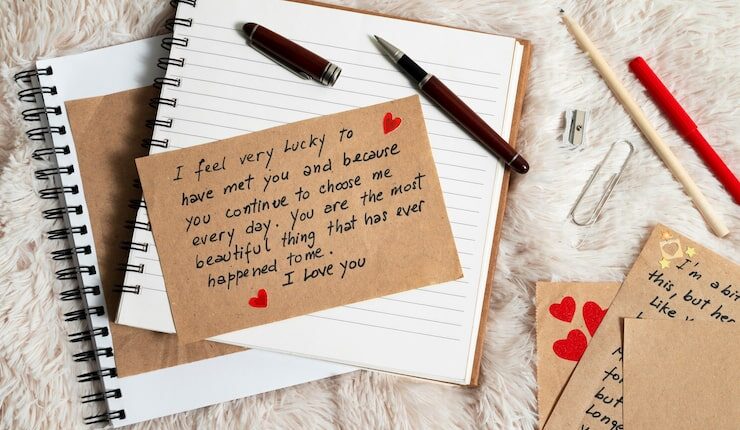 I feel very Lucky to
have met you and because
you continue to choose me
every day. You are the most
beautiful thing that has ever
happened to me.
I Love you
I'm a bit
this, but her
Like y
fo
but
Longe